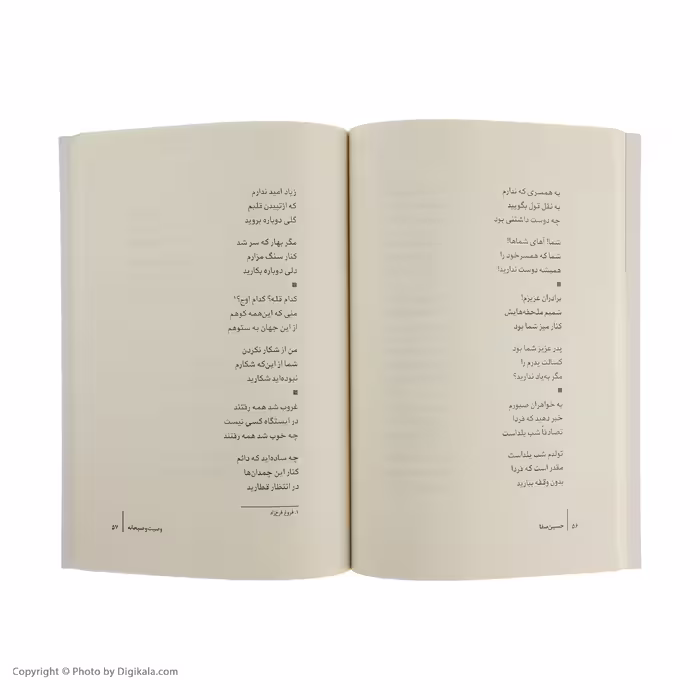 به همسری که ندارم
به نقل قول بگویید
چه دوست داشتنی بود
شما! آهای شماها!
شما که همسر خود را
همیشه دوست ندارید!
■
برادران عزیزم!
شمیم ملحفه‌هایش
کنار میز شما بود
پدر عزیز شما بود
کسالت پدرم را
مگر به‌یاد ندارید؟
■
به خواهران صبورم
خبر دهید که فردا
تصادفاً شب یلداست
تولدم شب یلداست
مقدر است که فردا
بدون وقفه ببارید
۵۶ | حسین صفا
زیاد امید ندارم
که از تپیدن قلبم
گلی دوباره بروید
مگر بهار که سر شد
کنار سنگ مزارم
دلی دوباره بکارید
■
کدام قله؟ کدام اوج؟¹
منی که این‌همه کوهم
از این جهان به ستوهم
من از شکار نکردن
شما از این‌که شکارم
نبوده‌اید شکارید
■
غروب شد همه رفتند
در ایستگاه کسی نیست
چه خوب شد همه رفتند
چه ساده‌اید که دائم
کنار این چمدان‌ها
در انتظار قطارید
۱. فروغ فرخزاد
وصیت و صبحانه | ۵۷
Copyright © Photo by Digikala.com